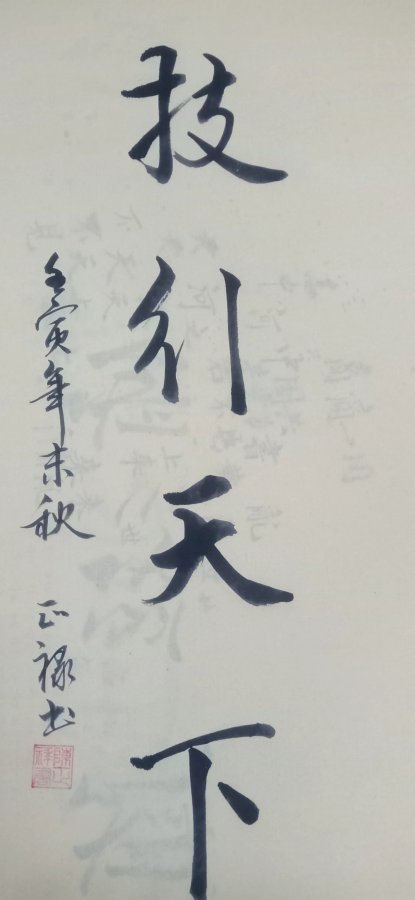 技行天下
壬寅年末秋 正禄书